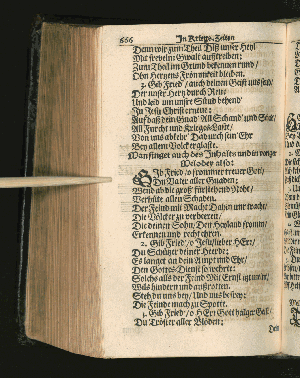 666 In Kriegs-Zeiten
Denn wir zum Theil Diß unser Heyl
Mit frevelm Gwalt außtreiben:
Zum Theil im Grund bekennen rund /
Ohn Hertzens Frömmkeit bleiben.
3. Gib Fried / auch deinen Geist uns send /
Der unser Hertz durch Reue
Und leid um unsre Sünd behend
In Jesu Christ erneue:
Auf daß dein Gnad All Schand und Sünd /
All Furcht und Krieges Last /
Von uns abkehr Dadurch dein Ehr
Bey allem Volck erglaste.
Man singet auch des Inhalts und in voriger
Melodey also:
GIb Fried / o frommer treuer Gott /
Du Vater aller Gnaden;
Wend ab die groß fürstehend Nothe /
Verhüte allen Schaden.
Der Feind mit Macht Dahin nur tracht /
Die Völcker zu verheeren /
Die deinen Sohn / Den Heyland fromm /
Erkennen und recht ehren.
2. Gib Fried / o Jesu lieber HErr /
Du Schützer deiner Heerde:
Es langet an dein Ampt und Ehr /
Den Gottes Dienst so werthe:
Solchs alls der Feind Mit Ernst
Wils hindern und außrotten.
Steh du uns bey / Und uns befrey:
Die Feinde mach zu Spotte.
3. Gib Fried / o HErr Gott heilger Geist /
Du Tröster aller Blöden;